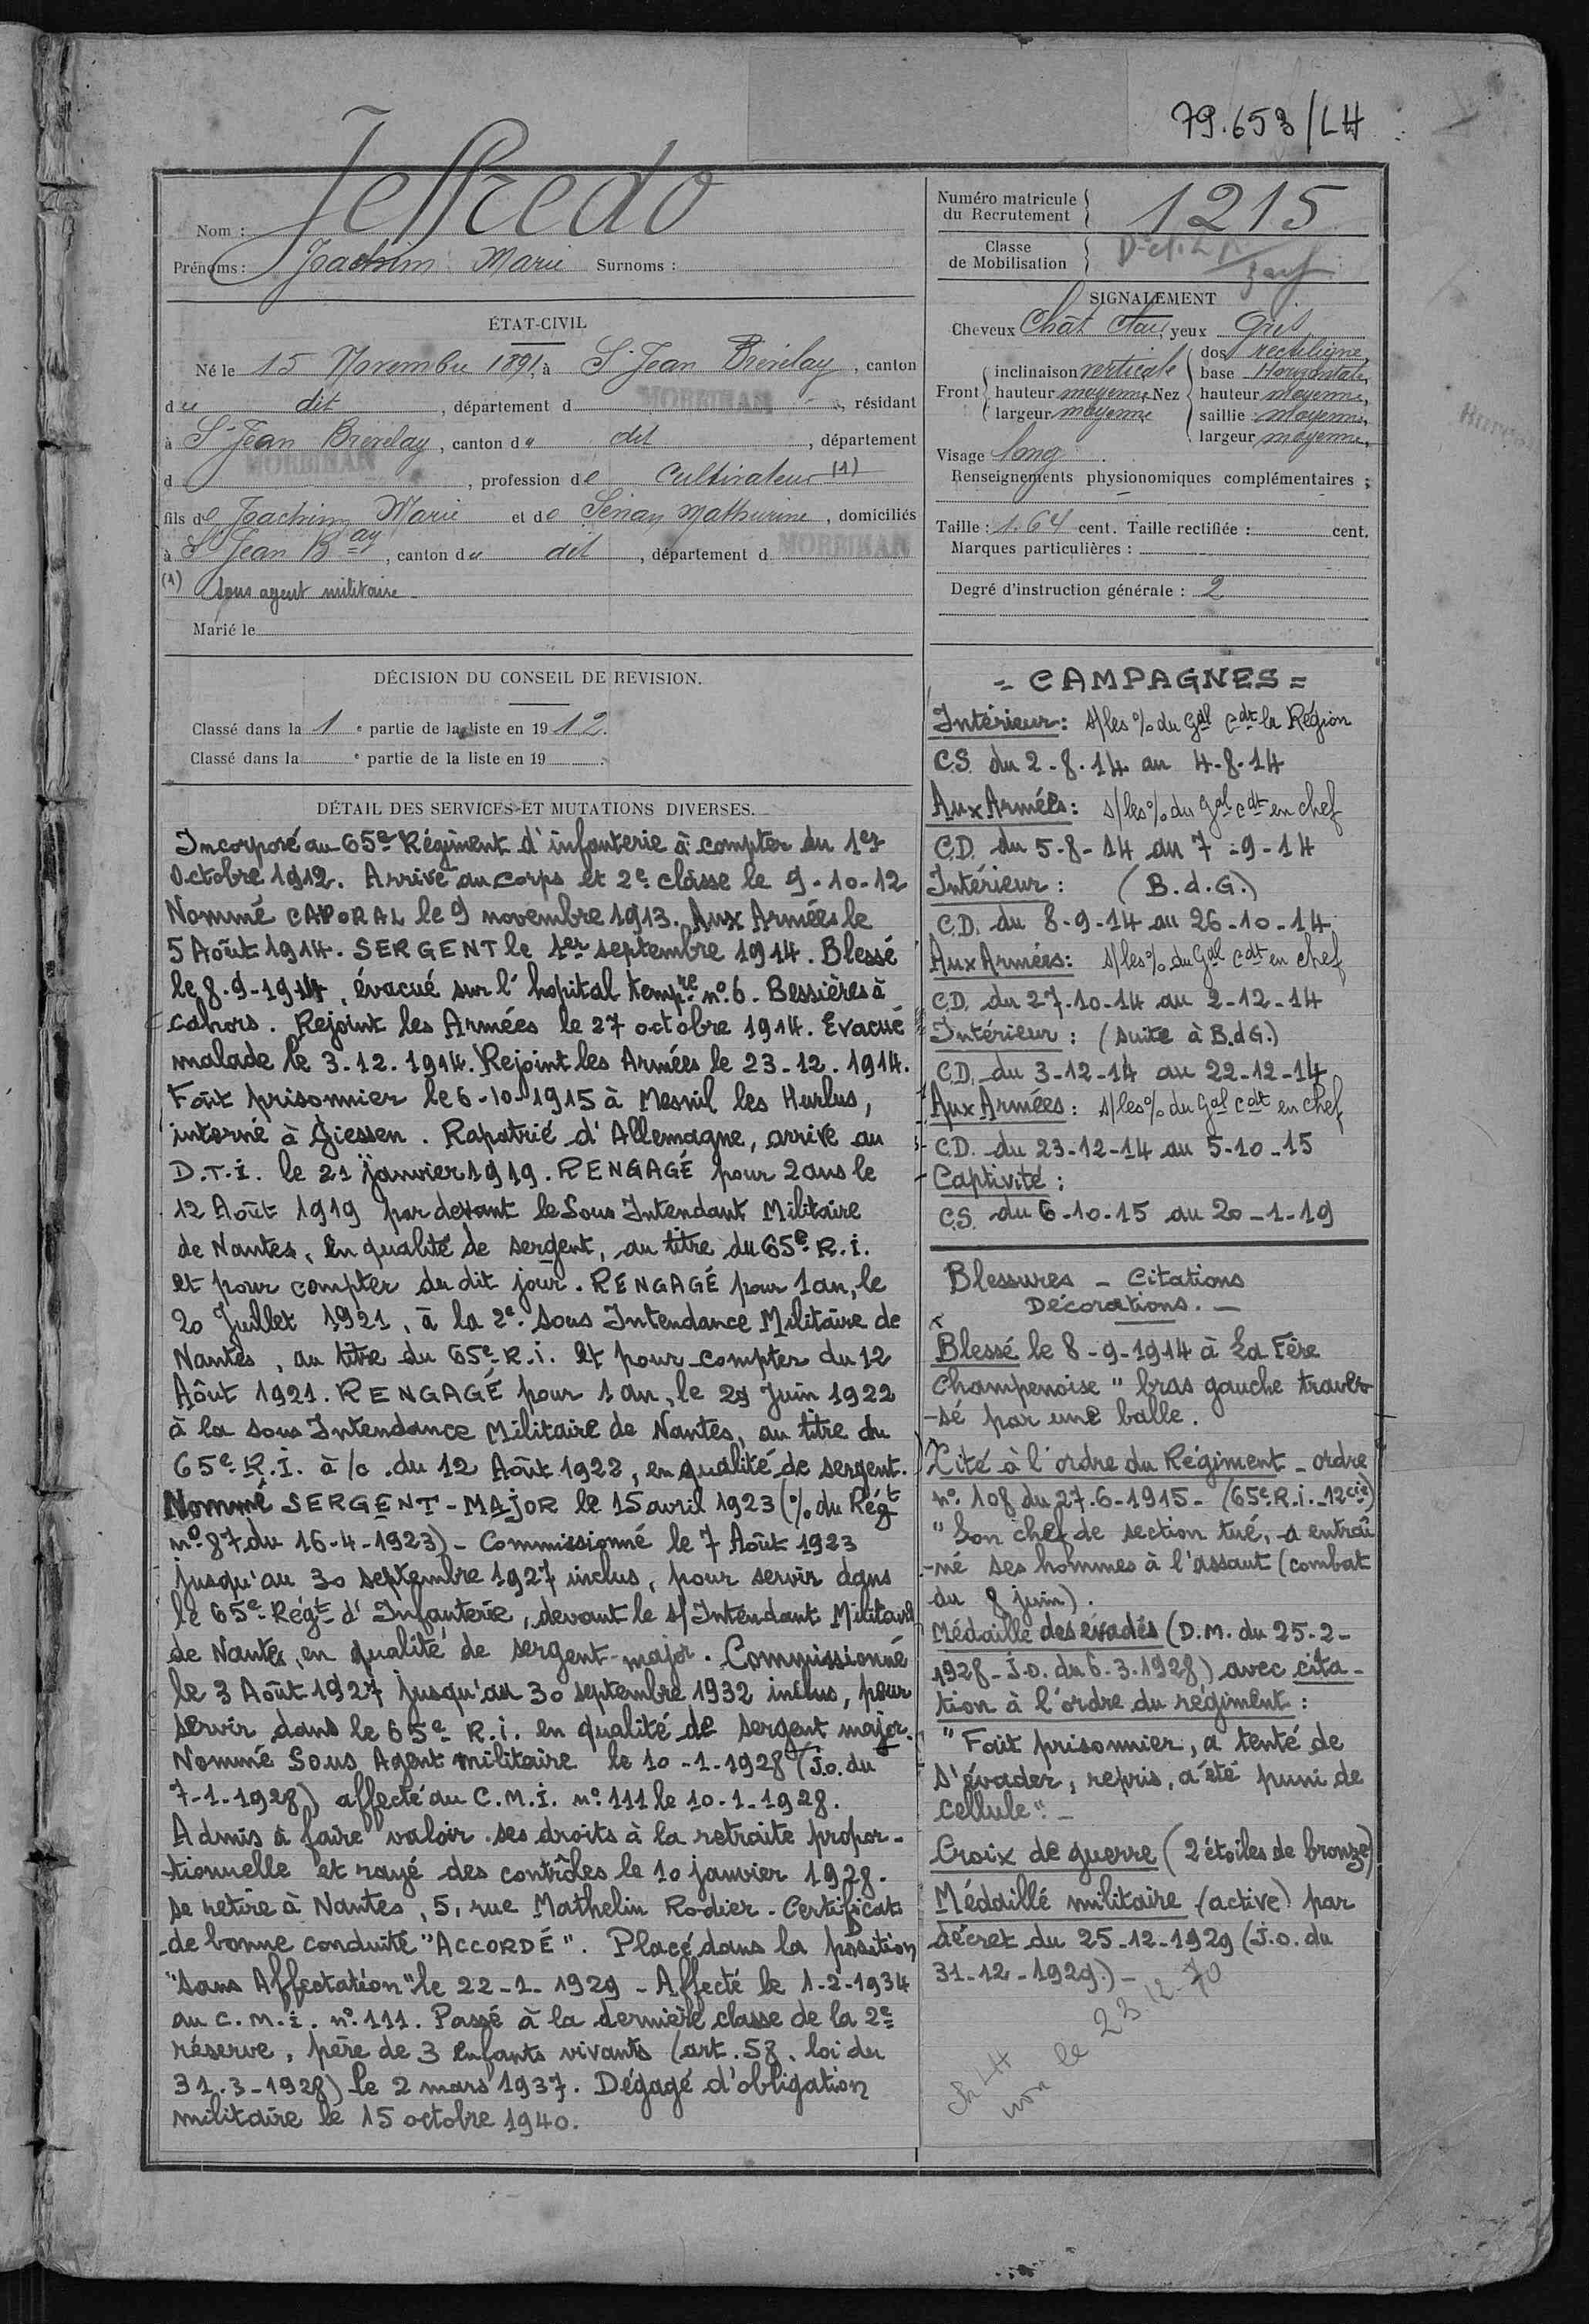 79.653/LH
Nom : Jeffredo
Prénoms : Joachim Marie Surnoms :
ÉTAT-CIVIL
Né le 15 Novembre 1891, à St Jean Brévelay, canton
du dit, département d MORBIHAN, résidant
à St Jean Brévelay, canton du dit, département
d MORBIHAN, profession de Cultivateur (1)
fils de Joachim Marie et de Mathurine, domiciliés
à St Jean Bay, canton du dit, département d MORBIHAN
(1) Sous agent militaire
Marié le
DÉCISION DU CONSEIL DE REVISION.
Classé dans la 1 e partie de la liste en 1912.
Classé dans la e partie de la liste en 19 .
DÉTAIL DES SERVICES ET MUTATIONS DIVERSES.
Incorporé au 65e Régiment d'infanterie à compter du 1er
Octobre 1912. Arrivé au corps et 2e classe le 9-10-12
Nommé CAPORAL le 9 novembre 1913. Aux Armées le
5 Août 1914. SERGENT le 1er septembre 1914. Blessé
le 8-9-1914, évacué sur l'hopital tempre no 6. Bessières à
cahors. Rejoint les Armées le 27 octobre 1914. Evacué
malade le 3.12.1914. Rejoint les Armées le 23-12.1914.
Fait prisonnier le 6-10-1915 à Mesnil les Hurlus,
interné à Giessen. Rapatrié d'Allemagne, arrivé au
D.T.I. le 21 janvier 1919. RENGAGÉ pour 2 ans le
12 Août 1919 par devant le Sous Intendant Militaire
de Nantes, en qualité de sergent, au titre du 65e R.I.
et pour compter du dit jour. RENGAGÉ pour 1 an, le
20 Juillet 1921, à la 2e Sous Intendance Militaire de
Nantes, au titre du 65e R.I. et pour compter du 12
Aôut 1921. RENGAGÉ pour 1 an, le Juin 1922
à la sous Intendance Militaire de Nantes, au titre du
65e R.I. à /c du 12 Août 1922, en qualité de sergent.
Nommé SERGENT-MAJOR le 15 avril 1923 (% du Régt
no 87 du 16-4-1923) - Commissionné le 7 Août 1923
jusqu'au 30 septembre 1927 inclus, pour servir dans
le 65e Régt d'Infanterie, devant le s/Intendant Militaire
de Nantes, en qualité de sergent-major. Commissionné
le 3 Août 1927 jusqu'au 30 septembre 1932 inclus, pour
servir dans le 65e R.I. en qualité de sergent major.
Nommé Sous Agent militaire le 10-1-1928 (J.O. du
7-1-1928) affecté au C.M.I. no 111 le 10-1-1928.
Admis à faire valoir ses droits à la retraite propor-
-tionnelle et rayé des contrôles le 10 janvier 1928.
se retire à Nantes, 5, rue Mathelin Rodier. Certificat
de bonne conduite "ACCORDÉ". Placé dans la position
"Sans Affectation" le 22-1-1929 - Affecté le 1-2-1934
au C.M.I. no 111. Passé à la dernière classe de la 2e
réserve, père de 3 enfants vivants (art. 58, loi du
31.3-1928) le 2 mars 1937. Dégagé d'obligation
militaire le 15 octobre 1940.
Numéro matricule
du Recrutement 1215
Classe
de Mobilisation
SIGNALEMENT
Cheveux Chât clair, yeux Gris
Front inclinaison verticale
hauteur moyenne
largeur moyenne
Nez dos rectiligne,
base Horizontale,
hauteur moyenne,
saillie moyenne,
largeur moyenne,
Visage long
Renseignements physionomiques complémentaires :
Taille : 1.64 cent. Taille rectifiée : cent.
Marques particulières :
Degré d'instruction générale : 2
- CAMPAGNES =
Intérieur : s/les % du Gal Cdt la Région
C.S. du 2-8-14 au 4-8-14
Aux Armées : s/les % du Gal Cdt en chef
C.D. du 5-8-14 au 7-9-14
Intérieur : (B.d.G.)
C.D. du 8-9-14 au 26-10-14
Aux Armées : s/les % du Gal Cdt en chef
C.D. du 27-10-14 au 2-12-14
Intérieur : (suite à B.dG.)
C.D. du 3-12-14 au 22-12-14
Aux Armées : s/les % du Gal Cdt en chef
C.D. du 23-12-14 au 5-10-15
Captivité :
C.S. du 6-10-15 au 20-1-19
Blessures - Citations
Décorations. -
Blessé le 8-9-1914 à La Fère
Champenoise "bras gauche traver-
-sé par une balle.
Cité à l'ordre du Régiment - ordre
no 108 du 27.6-1915 - (65e R.I. - 12cie)
"Son chef de section tué, a entraî
-né ses hommes à l'assaut (combat
du 8 juin).
Médaille des évadés (D.M. du 25-2-
1928 - J.O. du 6-3-1928) avec cita-
tion à l'ordre du régiment :
"Fait prisonnier, a tenté de
s'évader, repris, a été puni de
cellule". -
Croix de guerre (2 étoiles de bronze)
Médaillé militaire (active) par
décret du 25-12-1929 (J.O. du
31-12-1929) -
Ch LH
non le 23 12-70